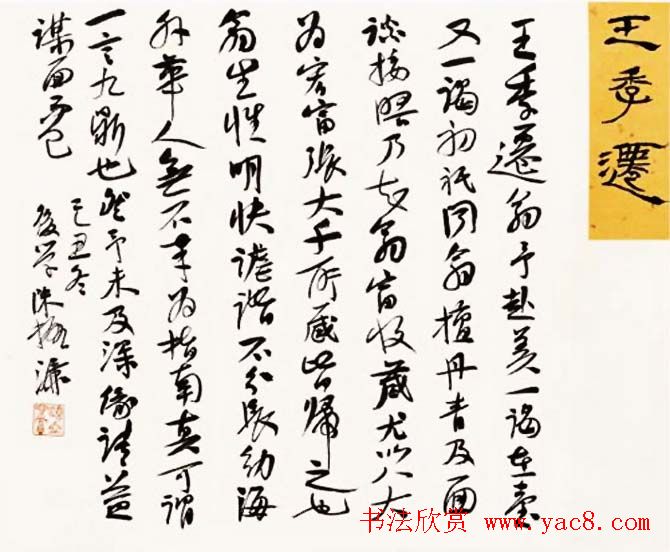 王季遷
王季遷翁予赴美一謁在臺
又一謁初祇聞翁擅丹青及面
談接晤乃知翁富收藏尤以大
為富張大千所藏皆歸之也
翁生性明快詼諧不分長幼海
外華人無不奉為指南真可謂
一言九鼎也然予未及深緣請益
謀面而已
己丑冬
後學陳振濂
书法欣赏 www.yac8.com